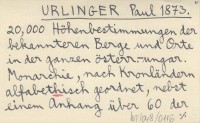 URLINGER Paul 1873.
20,000 Höhenbestimmungen der
bekannteren Berge und Orte
in der ganzen österr.-ungar.
Monarchie, nach Kronländern
alfabethisch geordnet, nebst
einem Anhang über 60 der